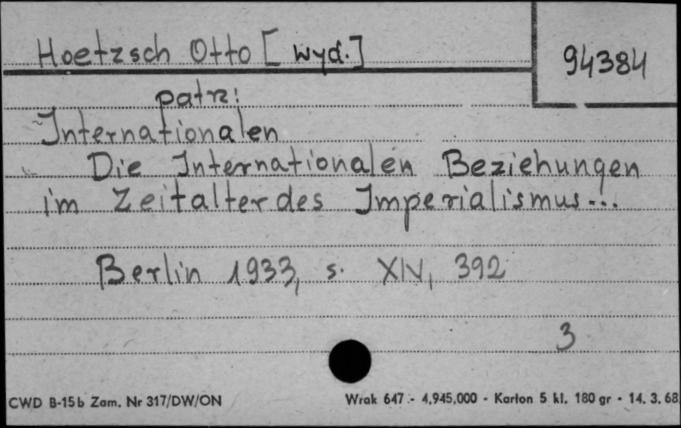 Hoetzsch Otto [wyd.]
94384
patrz:
Internationalen
Die Internationalen Beziehungen
im Zeitalter des Imperialismus...
Berlin 1933, s. XIV, 392
3
CWD B-15b Zam. Nr 317/DW/ON
Wrak 647 - 4,945,000 - Karton 5 kl. 180 gr - 14. 3. 68